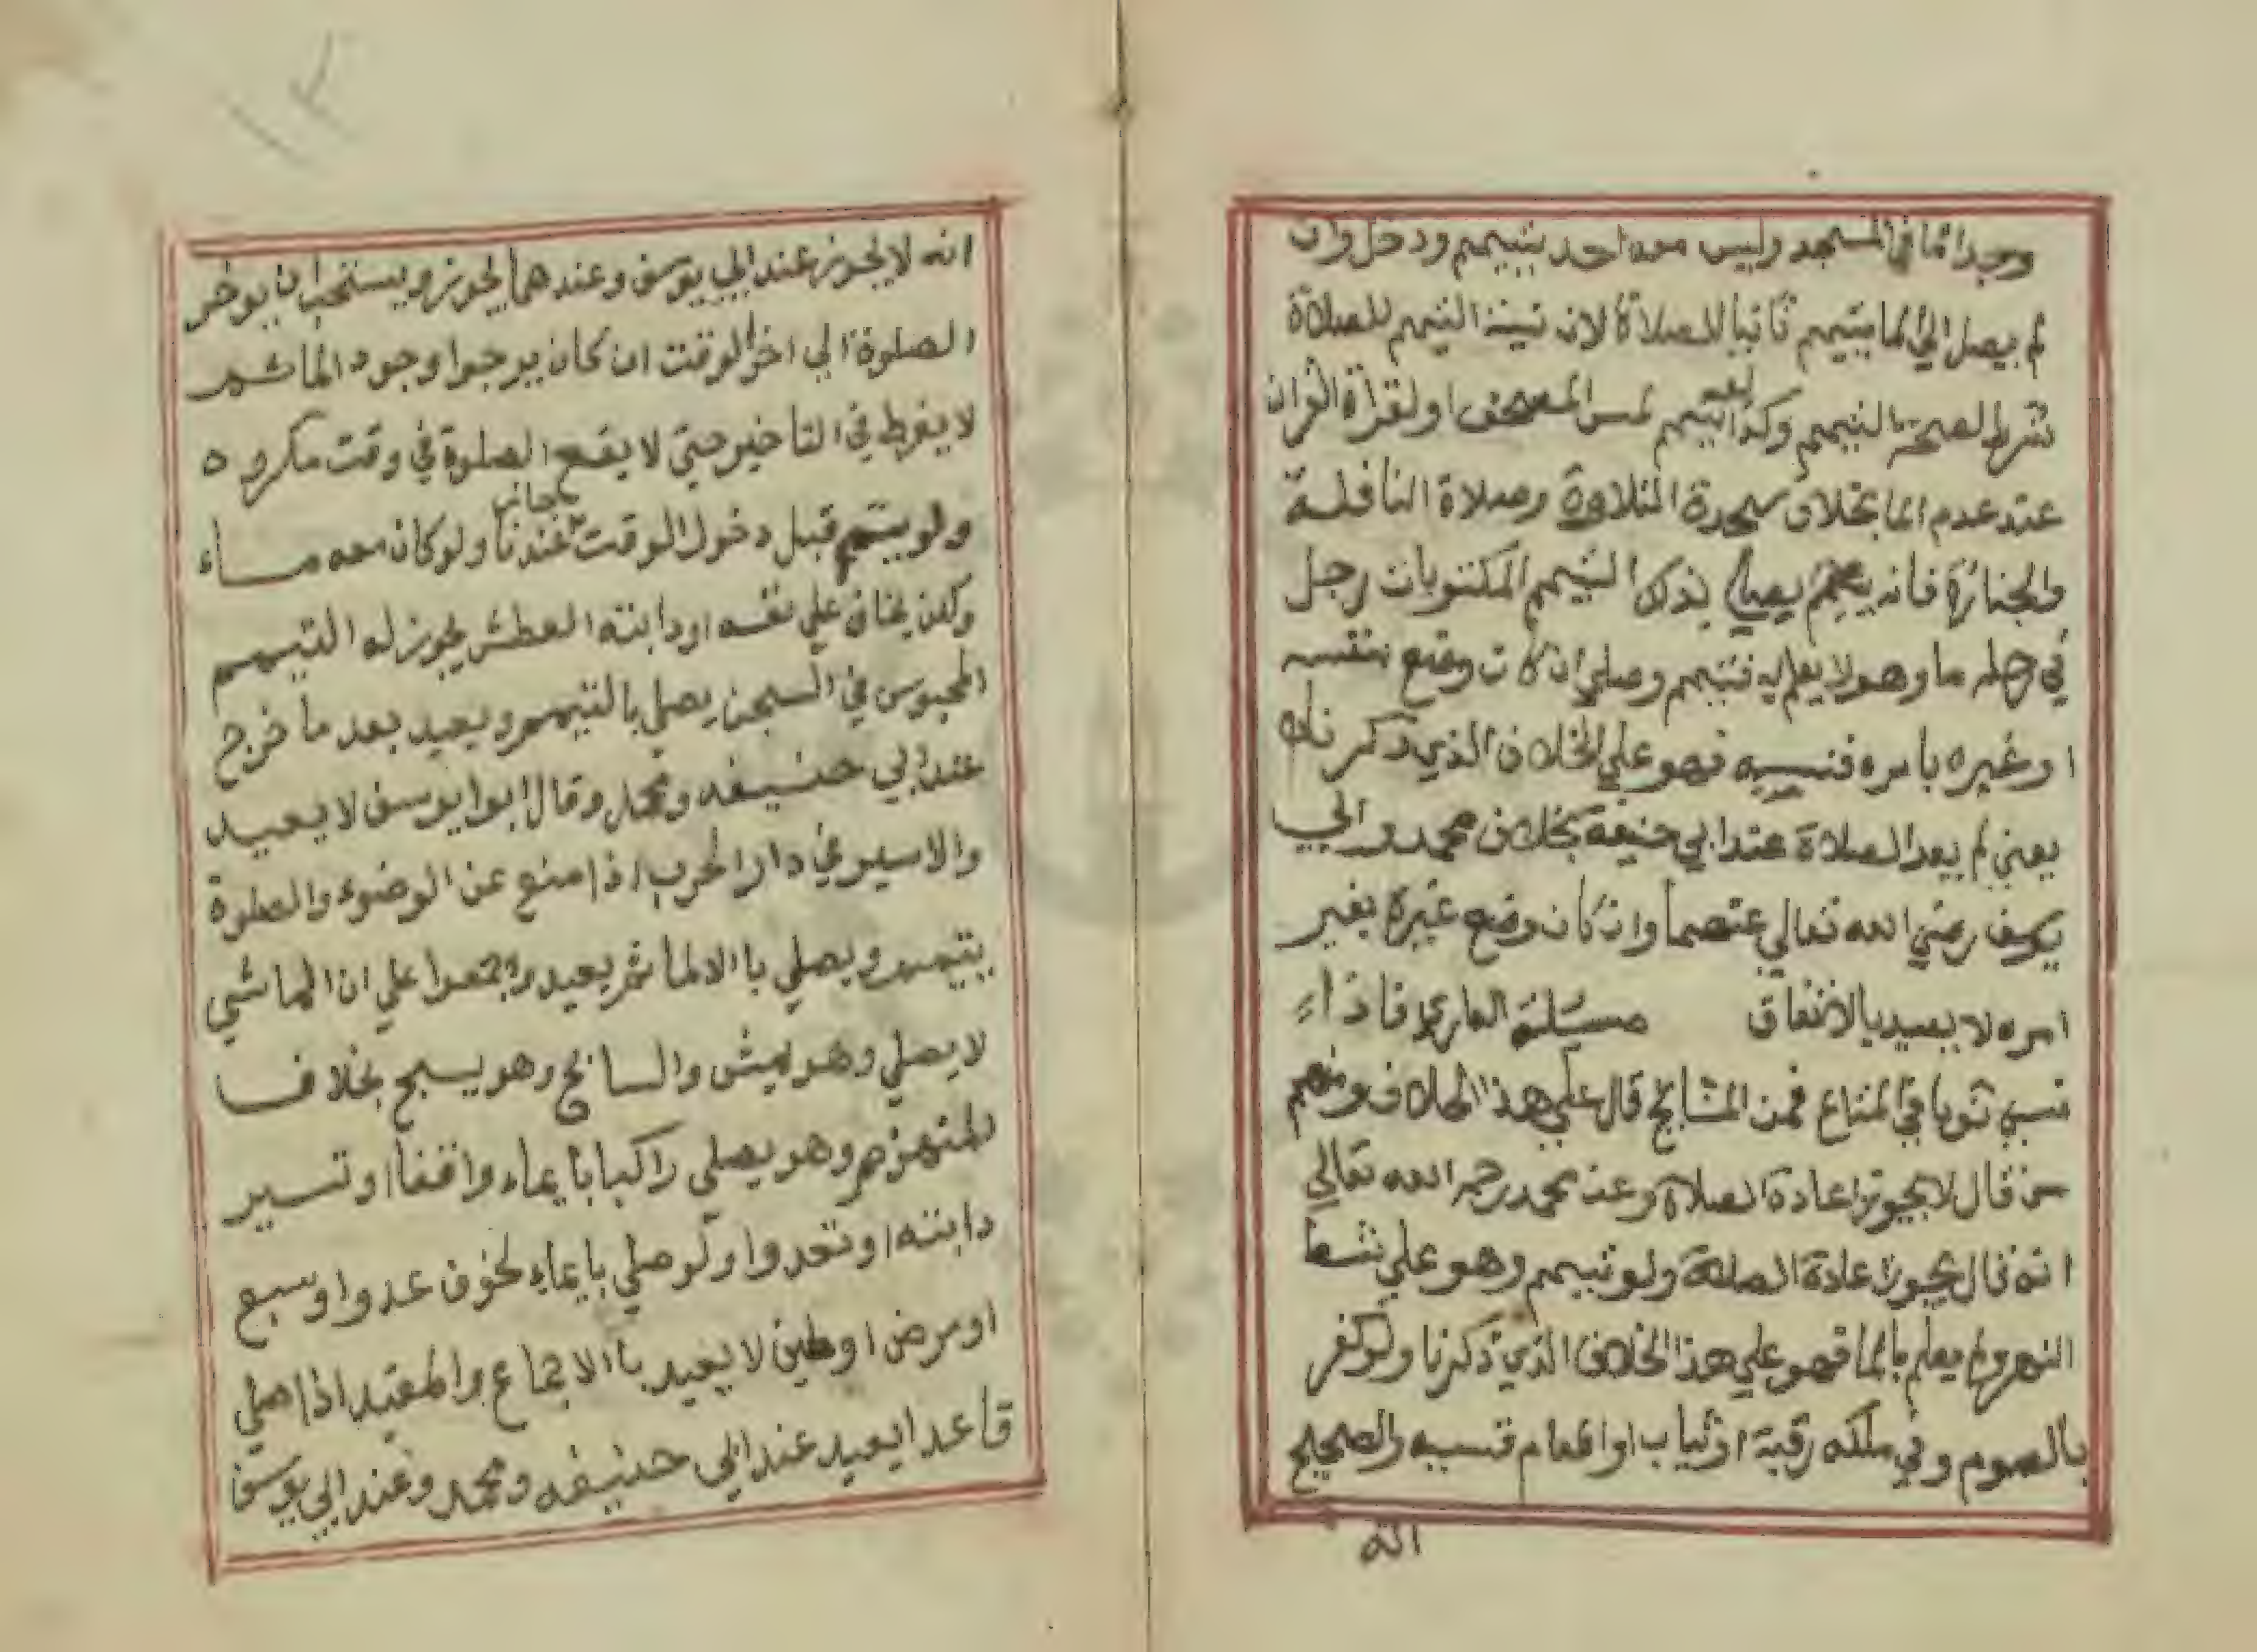 وجد الما في المسجد وليس معه احد يتيمم ودخل وان
لم يصل الي الما يتيمم ثانيا للصلاة لان نية التيمم للصلاة
شرط لصحة التيمم وكذا لو تيمم لمس المصحف او لقراة القران
عند عدم الما بخلاف سجدة التلاوة وصلاة النافلة
والجنازة فانه يصلي بذلك التيمم المكتوبات رجل
في رحله ما وهو لا يعلم به فتيمم وصلي ان كان وضع بنفسه
او غيره بامره فنسيه فهو علي الخلاف الذي ذكرناه
يعني لم يعد الصلاة عند ابي حنيفة بخلاف محمد وابي
يوسف رضي الله تعالي عنهما وان كان وضع غيره بغير
امره لا يعيد بالاتفاق مسئلة العاري فاذا
نسي ثوبا في المتاع فمن المشايخ قال علي هذا الخلاف ومنهم
من قال لا يجوز اعادة الصلاة وعند محمد رحمه الله تعالي
انه قال يجوز اعادة الصلاة ولو تيمم وهو علي شط
النهر ولم يعلم بالما فهو علي هذا الخلاف الذي ذكرنا ولو كفر
بالصوم وفي ملكه رقبة او ثياب او طعام فنسيه والصحيح
انه
١٢
انه لا يجوز عند ابي يوسف وعندهما يجوز ويستحب ان يوخر
الصلوة الي اخر الوقت ان كان يرجوا وجود الما ثم
لا يفرط في التاخير حتي لا يقع الصلوة في وقت مكروه
ولو يتيمم قبل دخول الوقت جائز عندنا ولو كان معه ماء
ولكن يخاف علي نفسه او دابته العطش يجوز له التيمم
المحبوس في السجن يصلي بالتيمم ويعيد بعد ما خرج
عند ابي حنيفه ومحمد وقال ابوا يوسف لا يعيد
والاسير في دار الحرب اذا منع عن الوضوء والصلوة
يتيمم ويصلي با الالما ثم يعيد واجمعوا علي ان الماشي
لا يصلي وهو يمش والسابح وهو يسبح بخلاف
المنهزم وهو يصلي راكبا بايماء واقفا او تسير
دابته او تعدوا ولو صلي بايماء لخوف عدوا وسبع
او مرض او طين لا يعيد با الاجماع والمقيد اذا صلي
قاعدا يعيد عند ابي حنيفه ومحمد وعند ابي يوسف